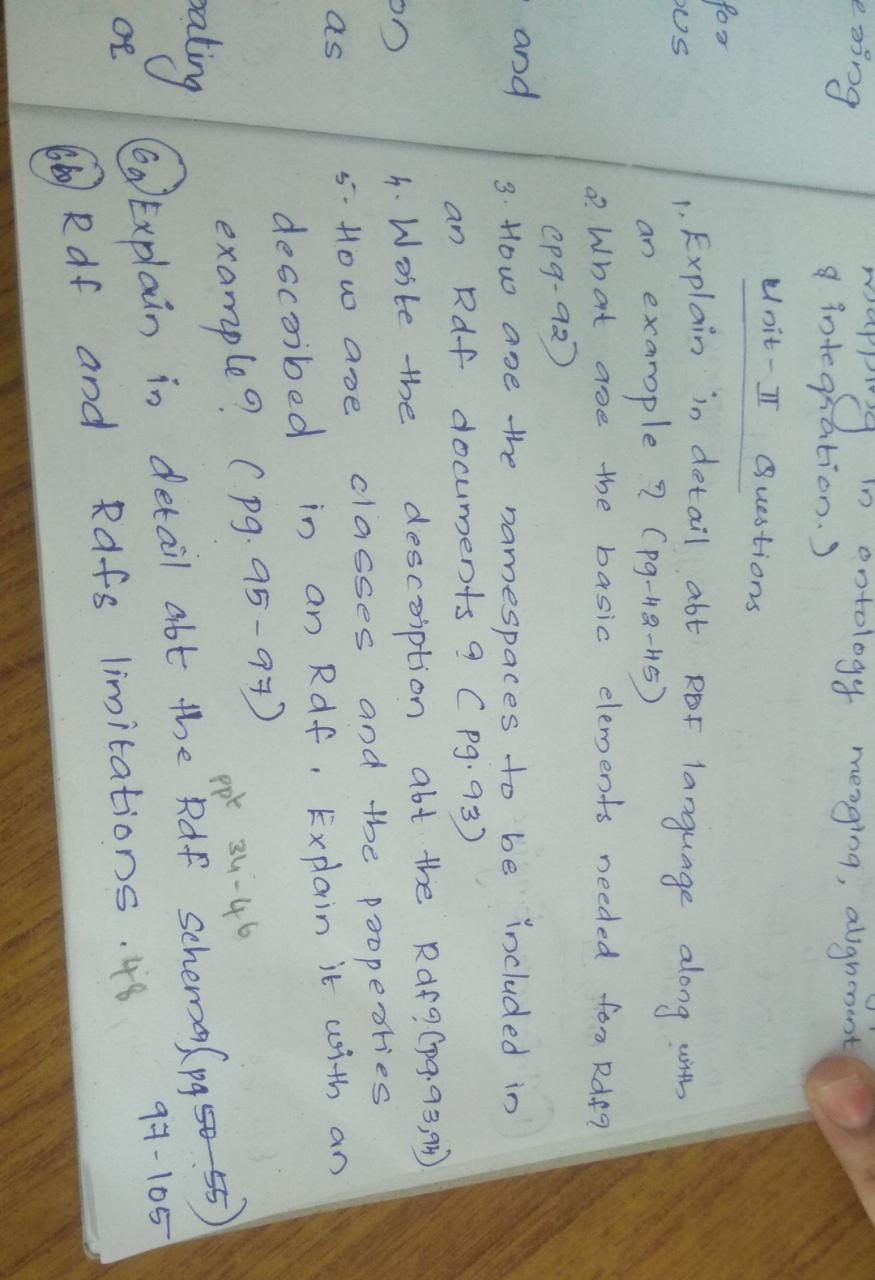 ering
for
ous
and
on
as
rating
or
mapping in ontology merging, alignment
& integration.)
Unit - II Questions
1. Explain in detail abt RDF language along with
an example ? (pg-42-45)
2. What are the basic elements needed for Rdf?
(pg-92)
3. How are the namespaces to be included in
an Rdf documents ? (pg.93)
4. Write the description abt the Rdf? (pg.93,94)
5. How are classes and the properties
described in an Rdf. Explain it with an
example? (pg. 95-97)
ppt 34-46
6a Explain in detail abt the Rdf schema (pg 50-55)
97-105
6b Rdf and Rdfs limitations. 48